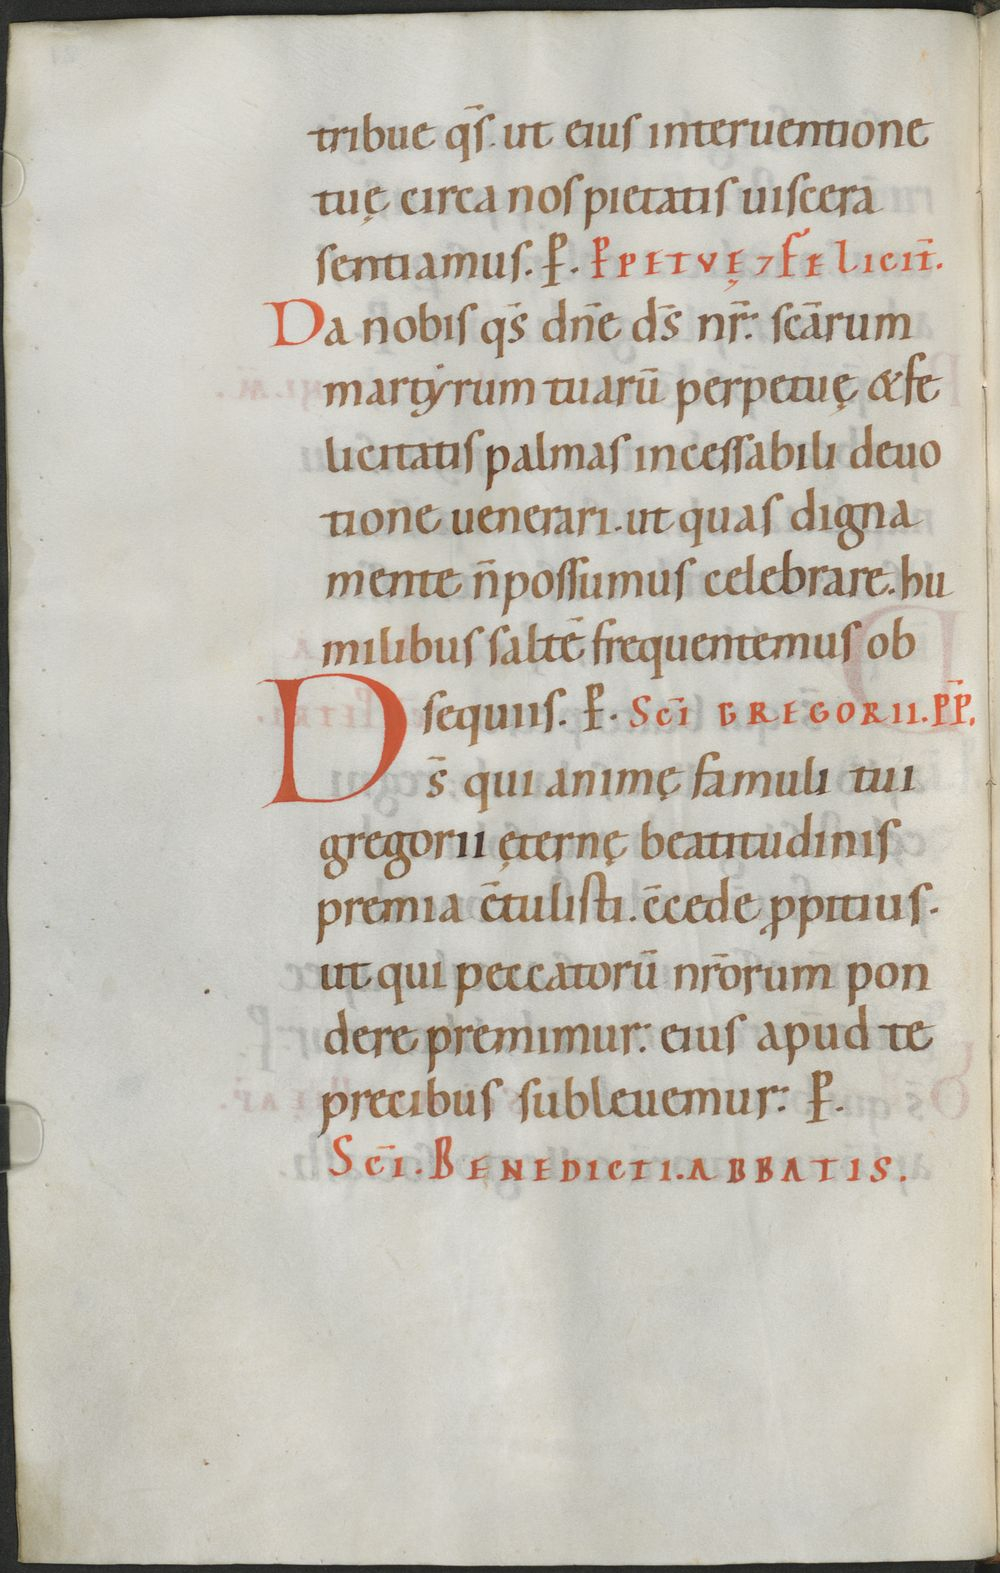 tribue q̄s. ut eius interuentione
tuę circa nos pietatis uiscera
sentiamus. P̲. P̲PETVĘ ⁊ FELICIT̄.
Da nobis q̄s dn̄e ds̄ nr̄: scārum
martẏrum tuarū perpetuę & fe
licitatis palmas incessabili deuo
tione uenerari. ut quas digna
mente n̄ possumus celebrare. hu
milibus saltē frequentemus ob
sequiis. P̲. SCĪ GREGORII. P̄P̄.
Ds̄ qui animę famuli tui
gregorii ęternę beatitudinis
premia c̄tulisti. c̄cede ꝓpitius.
ut qui peccatorū nr̄orum pon
dere premimur: eius apud te
precibus subleuemur: P̲.
SCĪ. BENEDICTI. ABBATIS.